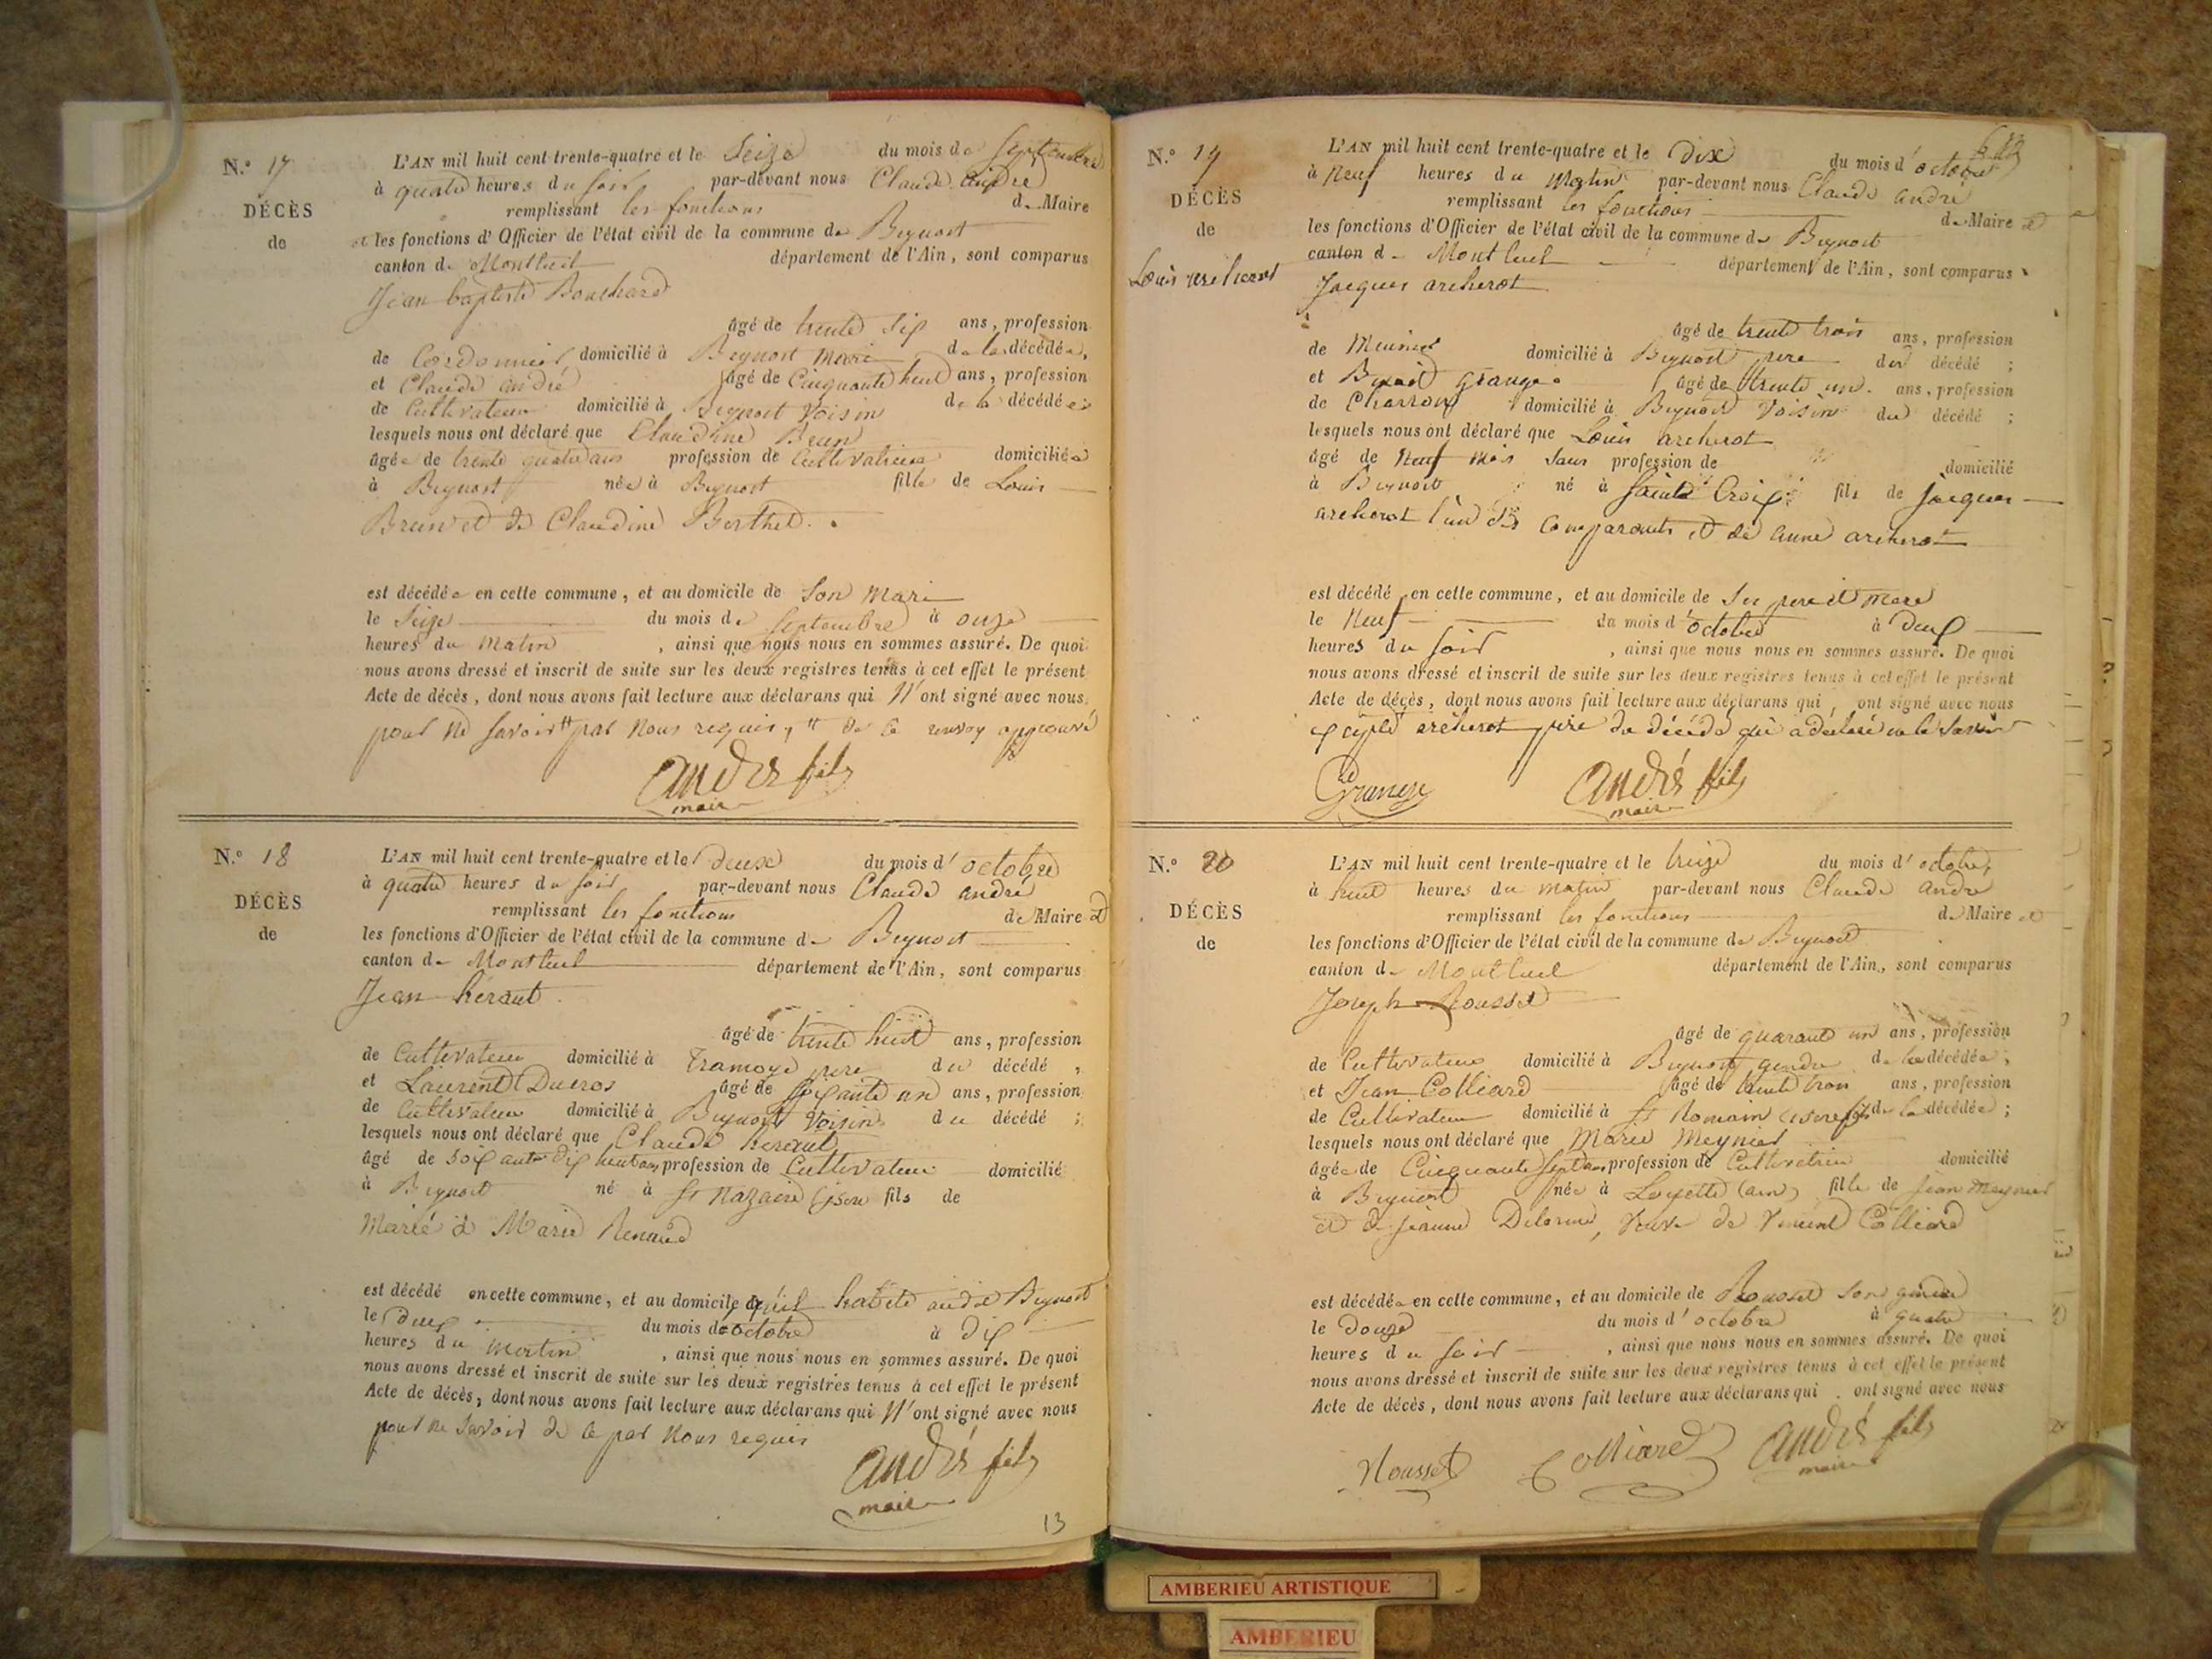 N.° 17
DÉCÈS
de
L'AN mil huit cent trente-quatre et le Seize du mois de Septembre
à quatre heures du soir par-devant nous Claude André
remplissant les fonctions de Maire
et les fonctions d'Officier de l'état civil de la commune de Beynost
canton de Montluel département de l'Ain, sont comparus
Jean baptiste Bouchard
âgé de trente six ans, profession
de Cordonnier domicilié à Beynost mari de la décédée,
et Claude andré âgé de Cinquante huit ans, profession
de Cultivateur domicilié à Beynost Voisin de la décédée
lesquels nous ont déclaré que Claudine Brun
âgée de trente quatre ans profession de Cultivatrice domiciliée
à Beynost née à Beynost fille de Louis
Brun et de Claudine Berthet.
est décédée en cette commune, et au domicile de Son Mari
le Seize du mois de Septembre à onze
heures du Matin, ainsi que nous nous en sommes assuré. De quoi
nous avons dressé et inscrit de suite sur les deux registres tenus à cet effet le présent
Acte de décès, dont nous avons fait lecture aux déclarans qui N'ont signé avec nous
pour ne savoir # par nous requis, # de ce renvoy approuvé
André fils
maire
N.° 18
DÉCÈS
de
L'AN mil huit cent trente-quatre et le deux du mois d'octobre
à quatre heures du soir par-devant nous Claude andré
remplissant les fonctions de Maire et
les fonctions d'Officier de l'état civil de la commune de Beynost
canton de Montluel département de l'Ain, sont comparus
Jean héraut
âgé de trente huit ans, profession
de Cultivateur domicilié à Tramoye père du décédé,
et Laurent Ducros âgé de soixante un ans, profession
de Cultivateur domicilié à Beynost Voisin du décédé ;
lesquels nous ont déclaré que Claude heraut
âgé de soixante dix huit ans profession de Cultivateur domicilié
à Beynost né à St Nazaire isere fils de
Marié à Marie Renaud
est décédé en cette commune, et au domicile qu'il habite audit Beynost
le deux du mois de octobre à dix
heures du matin, ainsi que nous nous en sommes assuré. De quoi
nous avons dressé et inscrit de suite sur les deux registres tenus à cet effet le présent
Acte de décès, dont nous avons fait lecture aux déclarans qui N'ont signé avec nous
pour ne savoir de ce par nous requis
André fils
maire
13
N.° 19
DÉCÈS
de
Louis archerot
L'AN mil huit cent trente-quatre et le dix du mois d'octobre
à Neuf heures du Matin par-devant nous Claude andré
remplissant les fonctions de Maire et
les fonctions d'Officier de l'état civil de la commune de Beynost
canton de Montluel département de l'Ain, sont comparus
Jacques archerot
âgé de trente trois ans, profession
de Meunier domicilié à Beynost père du décédé ;
et Benoit Grange âgé de trente un ans, profession
de Charron domicilié à Beynost Voisin du décédé ;
lesquels nous ont déclaré que Louis archerot
âgé de Neuf mois sans profession de domicilié
à Beynost né à Sainte Croix fils de jacques
archerot l'un des Comparants et de anne archerot
est décédé en cette commune, et au domicile de Ses père et mere
le Neuf du mois d'octobre à deux
heures du soir, ainsi que nous nous en sommes assuré. De quoi
nous avons dressé et inscrit de suite sur les deux registres tenus à cet effet le présent
Acte de décès, dont nous avons fait lecture aux déclarans qui, ont signé avec nous
excepté archerot père du décédé qui a déclaré ne le savoir
Grange
André fils
maire
N.° 20
DÉCÈS
de
L'AN mil huit cent trente-quatre et le treize du mois d'octobre,
à huit heures du matin par-devant nous Claude andré
remplissant les fonctions de Maire et
les fonctions d'Officier de l'état civil de la commune de Beynost
canton de Montluel département de l'Ain, sont comparus
Joseph Rousset
âgé de quarante un ans, profession
de Cultivateur domicilié à Beynost gendre de la décédée ;
et Jean Colliard âgé de trente trois ans, profession
de Cultivateur domicilié à St Romain isere fils de la décédée ;
lesquels nous ont déclaré que Marie Meynier
âgée de Cinquante sept ans profession de Cultivatrice domicilié
à Beynost née à Loyette (ain) fille de Jean Meynier
et de Jeanne Delorme, Veuve de Vincent Colliard
est décédée en cette commune, et au domicile de Rousset son gendre
le Douze du mois d'octobre à quatre
heures du soir, ainsi que nous nous en sommes assuré. De quoi
nous avons dressé et inscrit de suite sur les deux registres tenus à cet effet le présent
Acte de décès, dont nous avons fait lecture aux déclarans qui ont signé avec nous
Rousset
Colliard
André fils
maire
AMBERIEU ARTISTIQUE
AMBERIEU